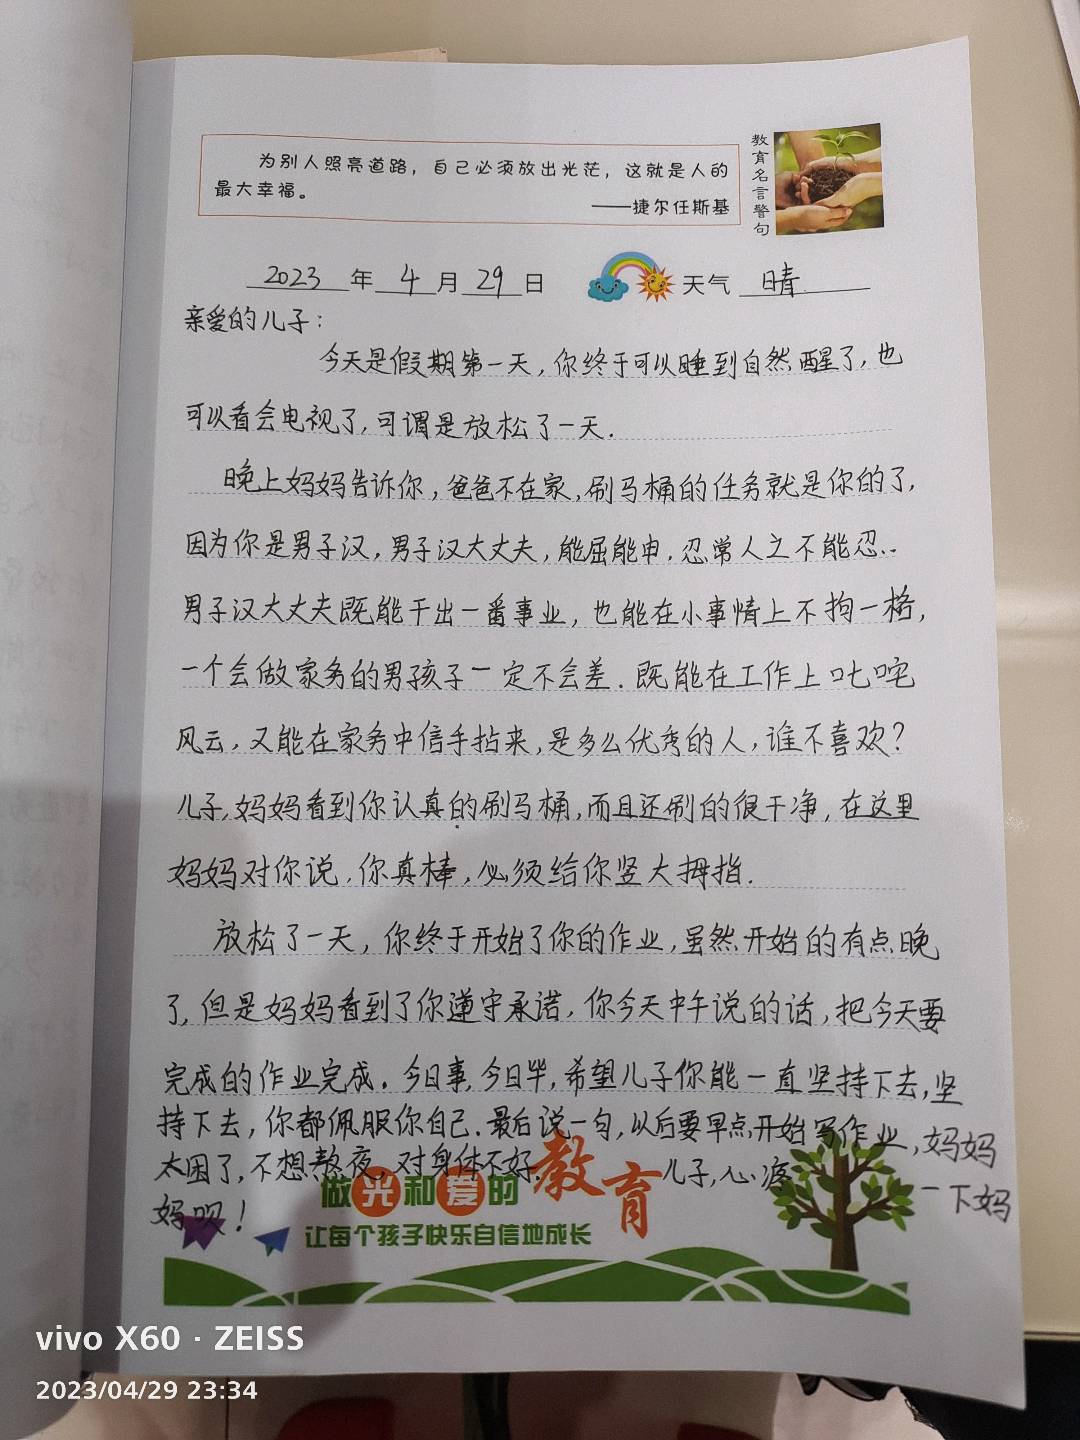 为别人照亮道路，自己必须放出光茫，这就是人的
最大幸福。
——捷尔任斯基
教育名言警句
2023年4月29日 天气 晴
亲爱的儿子：
今天是假期第一天，你终于可以睡到自然醒了，也
可以看会电视了，可谓是放松了一天．
晚上妈妈告诉你，爸爸不在家，刷马桶的任务就是你的了，
因为你是男子汉，男子汉大丈夫，能屈能申，忍常人之不能忍..
男子汉大丈夫既能干出一番事业，也能在小事情上不拘一格，
一个会做家务的男孩子一定不会差．既能在工作上叱咤
风云，又能在家务中信手拈来，是多么优秀的人，谁不喜欢？
儿子，妈妈看到你认真的刷马桶，而且还刷的很干净，在这里
妈妈对你说，你真棒，必须给你竖大拇指．
放松了一天，你终于开始了你的作业，虽然开始的有点晚
了，但是妈妈看到了你遵守承诺，你今天中午说的话，把今天要
完成的作业完成．今日事，今日毕，希望儿子你能一直坚持下去，坚
持下去，你都佩服你自己．最后说一句，以后要早点开始写作业，妈妈
太困了，不想熬夜，对身体不好． 儿子，心疼一下妈
妈呗！
做光和爱的教育
让每个孩子快乐自信地成长
vivo X60 · ZEISS
2023/04/29 23:34